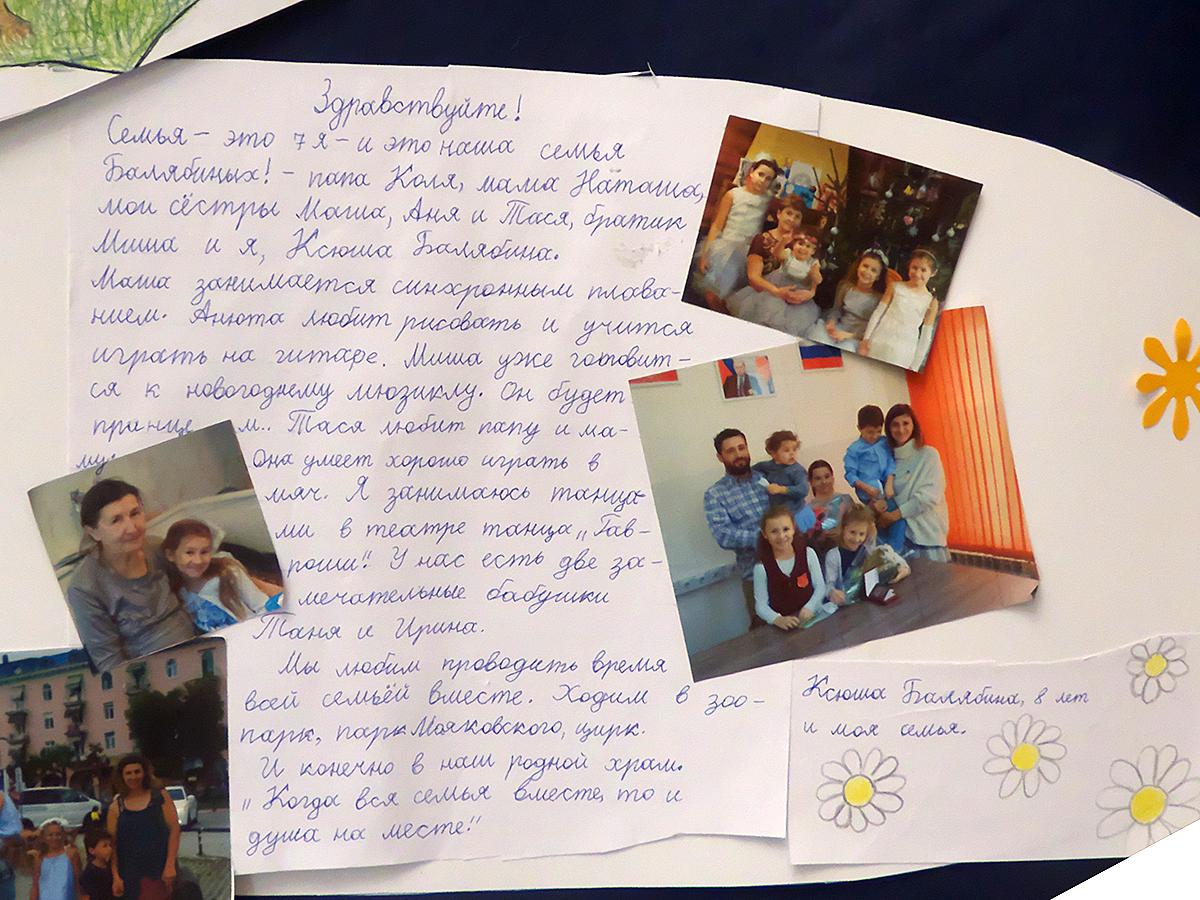 Здравствуйте!
Семья – это 7я – и это наша семья
Балябиных! – папа Коля, мама Наташа,
мои сёстры Маша, Аня и Тася, братик
Миша и я, Ксюша Балябина.
Маша занимается синхронным плава-
нием. Анюта любит рисовать и учится
играть на гитаре. Миша уже готовит-
ся к новогоднему мюзиклу. Он будет
м.. Тася любит папу и ма-
му Она умеет хорошо играть в
мяч. Я занимаюсь танца
ми в театре танца „Гав-
роши". У нас есть две за-
мечательные бабушки
Таня и Ирина.
Мы любим проводить время
всей семьёй вместе. Ходим в зоо-
парк, парк Маяковского, цирк.
И конечно в наш родной храм.
"Когда вся семья вместе, то и
душа на месте!"
Ксюша Балябина, 8 лет
и моя семья.